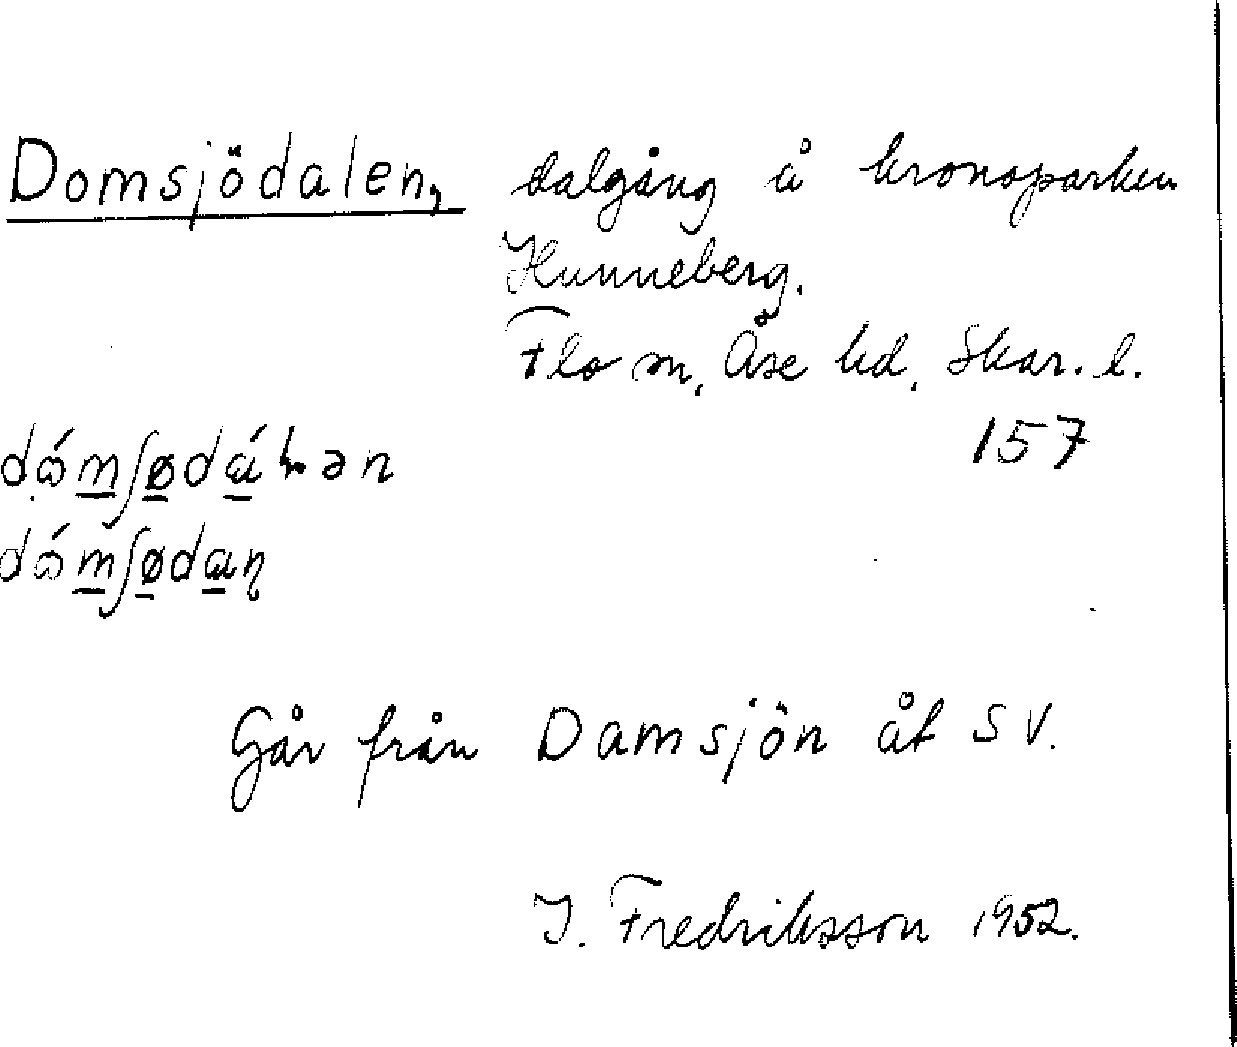 Domsjödalen, dalgång å kronoparken
Hunneberg.
Flo sn, Åse hd, Skar. l.
157
Går från Damsjön åt SV.
I. Fredriksson 1952.